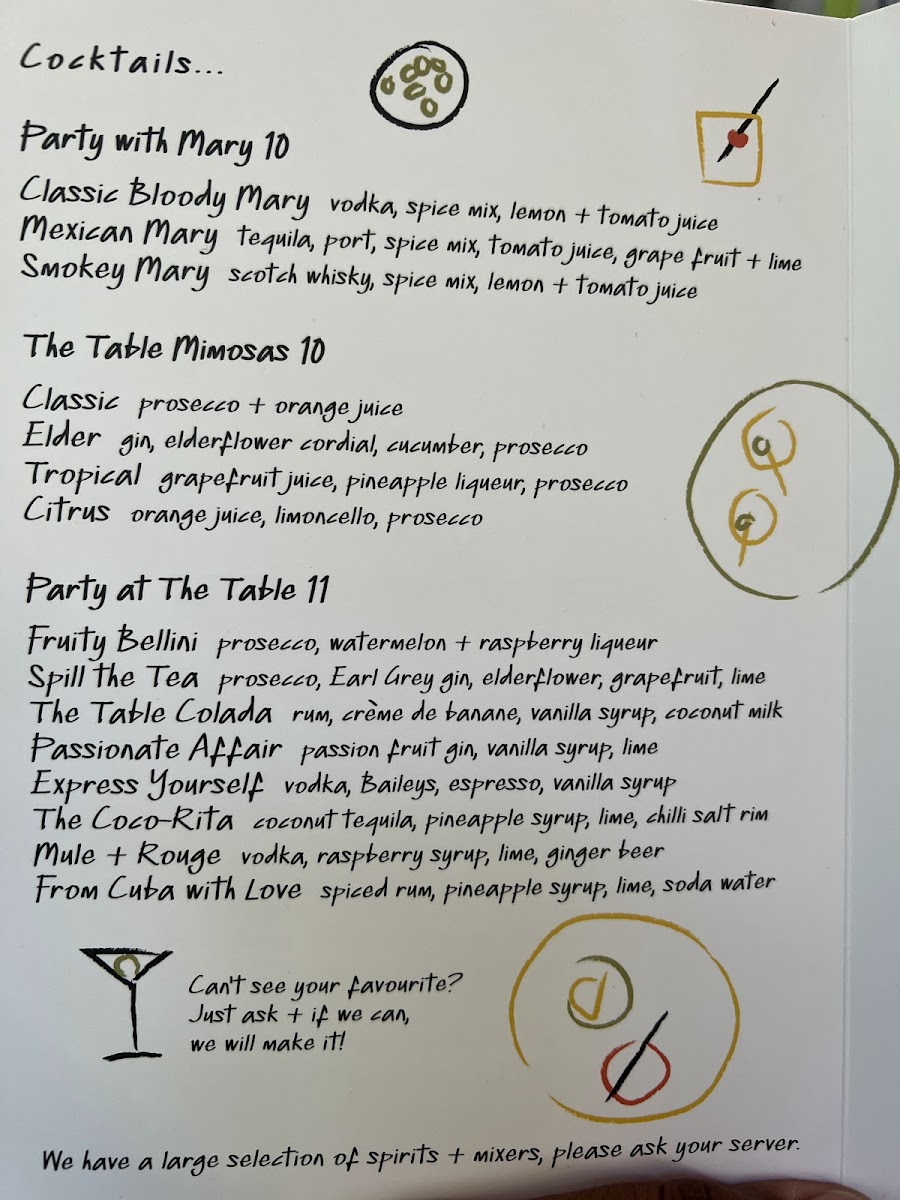 Cocktails...
Party with Mary 10
Classic Bloody Mary vodka, spice mix, lemon + tomato juice
Mexican Mary tequila, port, spice mix, tomato juice, grape fruit + lime
Smokey Mary scotch whisky, spice mix, lemon + tomato juice
The Table Mimosas 10
Classic prosecco + orange juice
Elder gin, elderflower cordial, cucumber, prosecco
Tropical grapefruit juice, pineapple liqueur, prosecco
Citrus orange juice, limoncello, prosecco
Party at The Table 11
Fruity Bellini prosecco, watermelon + raspberry liqueur
Spill the Tea prosecco, Earl Grey gin, elderflower, grapefruit, lime
The Table Colada rum, crème de banane, vanilla syrup, coconut milk
Passionate Affair passion fruit gin, vanilla syrup, lime
Express Yourself vodka, Baileys, espresso, vanilla syrup
The Coco-Rita coconut tequila, pineapple syrup, lime, chilli salt rim
Mule + Rouge vodka, raspberry syrup, lime, ginger beer
From Cuba with Love spiced rum, pineapple syrup, lime, soda water
Can't see your favourite?
Just ask + if we can,
we will make it!
We have a large selection of spirits + mixers, please ask your server.